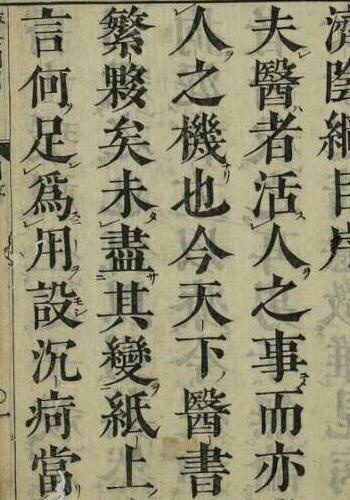 濟陰綱目序
夫醫者活人之事而亦
人之機也今天下醫書
繁夥矣未盡其變紙上
言何足爲用設沉痾當